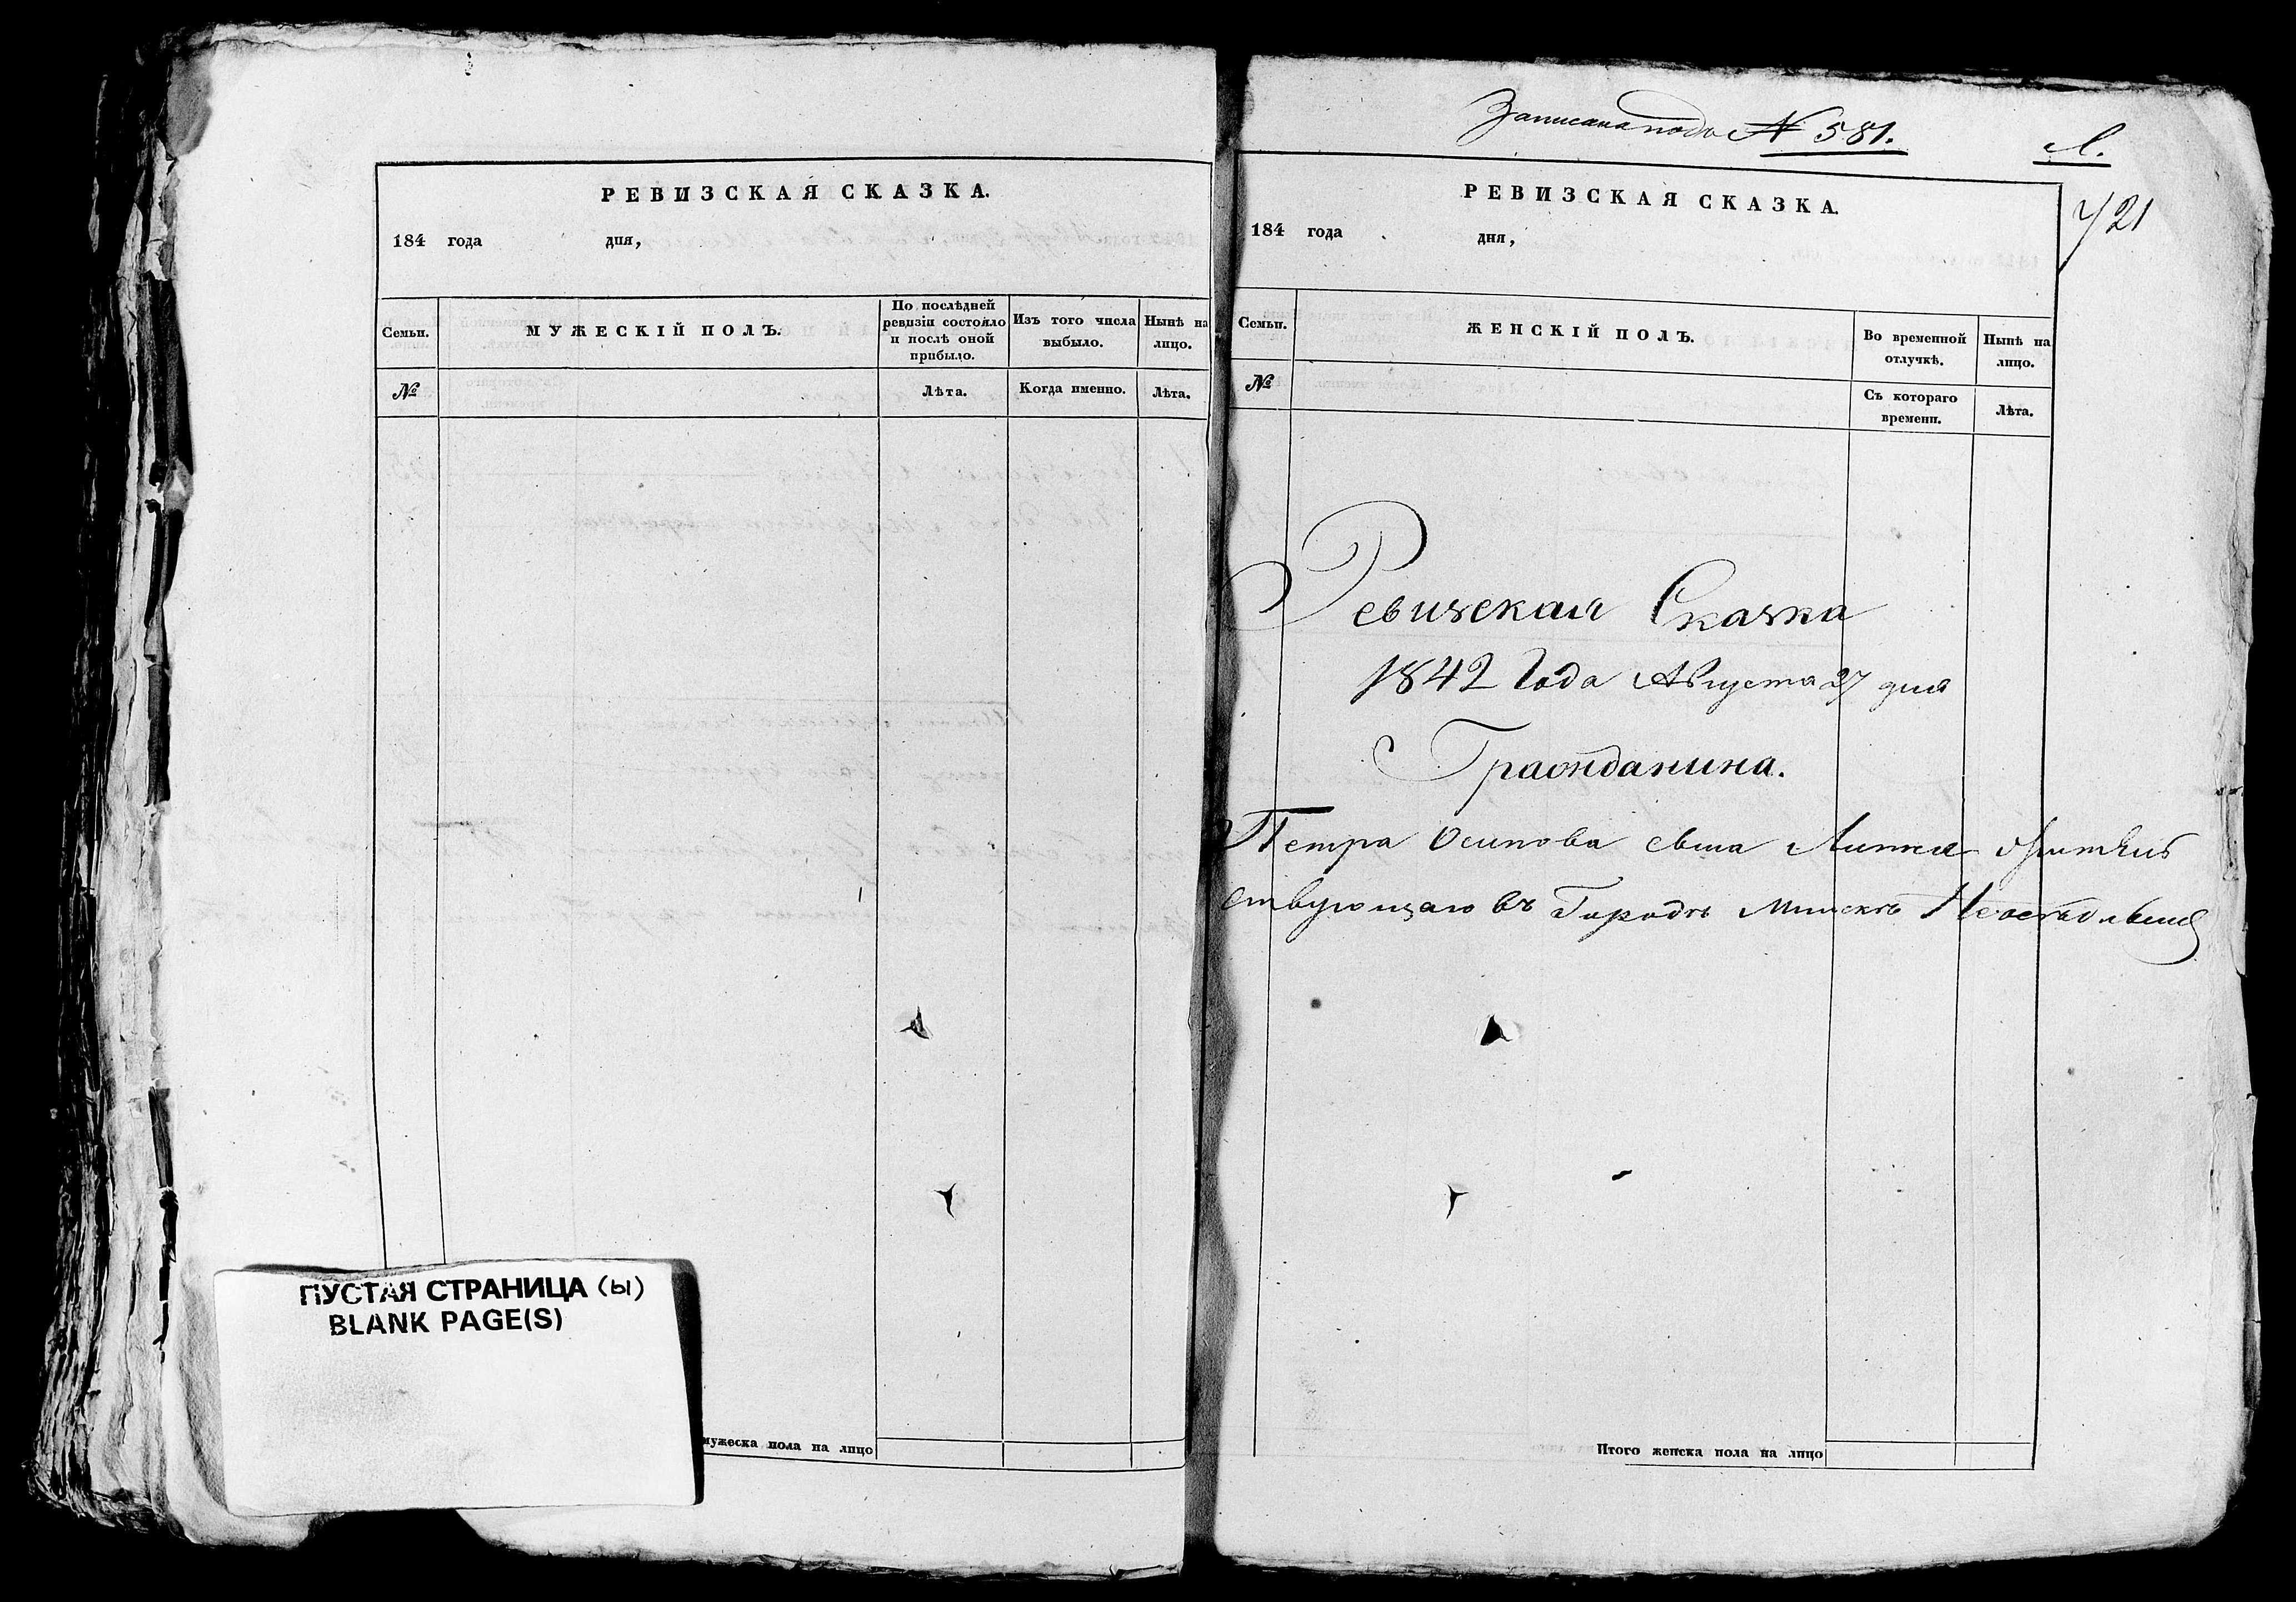 РЕВИЗСКАЯ СКАЗКА.
184 года дня,
Семьи. МУЖЕСКІЙ ПОЛЪ. По послѣдней ревизіи состояло и послѣ оной прибыло. Изъ того числа выбыло. Нынѣ на лицо.
№ Лѣта. Когда именно. Лѣта.
мужеска пола на лицо
ПУСТАЯ СТРАНИЦА (Ы)
BLANK PAGE(S)
Записана подъ № 581.
Л.
721
РЕВИЗСКАЯ СКАЗКА.
184 года дня,
Семьи. ЖЕНСКІЙ ПОЛЪ. Во временной отлучкѣ. Нынѣ на лицо.
№ Съ котораго времени. Лѣта.
Ревизская Сказка
1842 Года Августа 27 дня
Гражданина.
Петра Осипова сына
ствующаго въ Городѣ Минскѣ
Итого женска пола на лицо